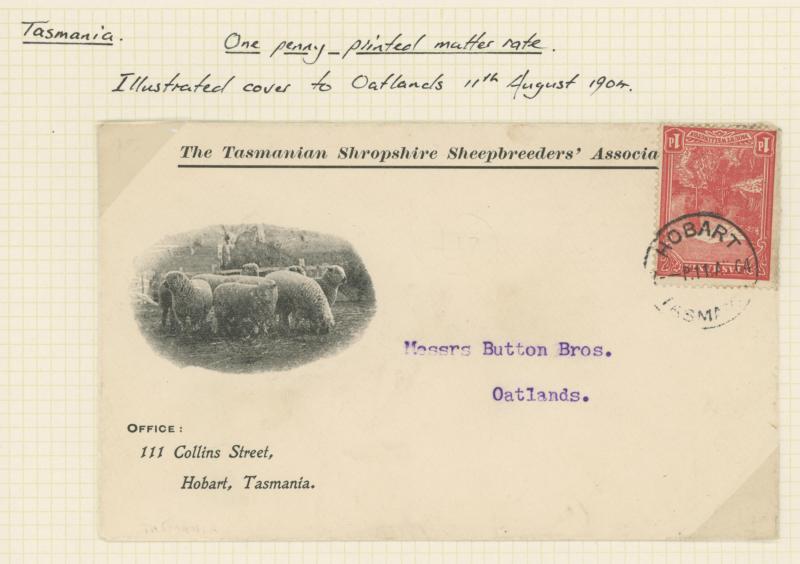 Tasmania.
One penny - printed matter rate.
Illustrated cover to Oatlands 11th August 1904.
The Tasmanian Shropshire Sheepbreeders' Associa
1d 1d
HOBART
TASMA
Messrs Button Bros.
Oatlands.
OFFICE:
111 Collins Street,
Hobart, Tasmania.